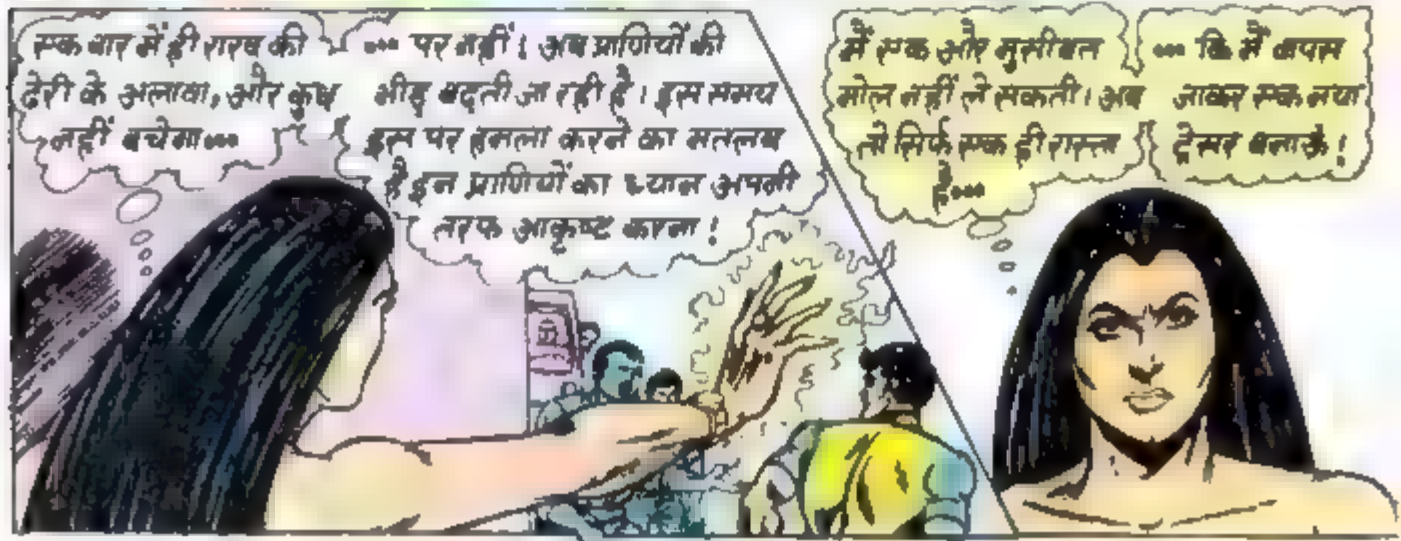 एक बार में ही राख की
ढेरी के अलावा, और कुछ
नहीं बचेगा...
... पर नहीं! अब प्राणियों की
भीड़ बढ़ती जा रही है। इस समय
इस पर हमला करने का मतलब
है इन प्राणियों का ध्यान अपनी
तरफ आकृष्ट करना!
मैं एक और मुसीबत
मोल नहीं ले सकती। अब
तो सिर्फ एक ही रास्ता
है...
... कि मैं वापस
जाकर एक नया
ट्रेसर बनाऊं!